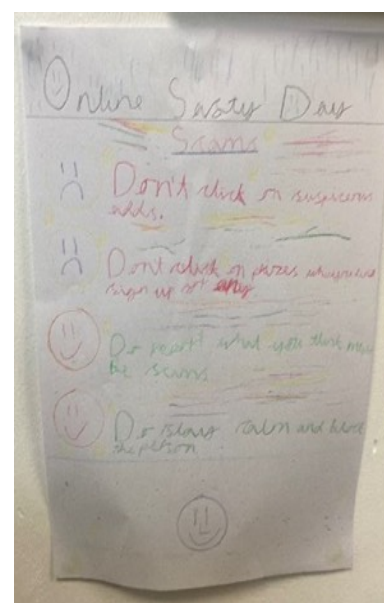 Online Savety Day
Scams
Don't click on suspicious
adds.
Don't click on prizes
sign up
Do report what you think may
be scams
Do stay calm and block
the person